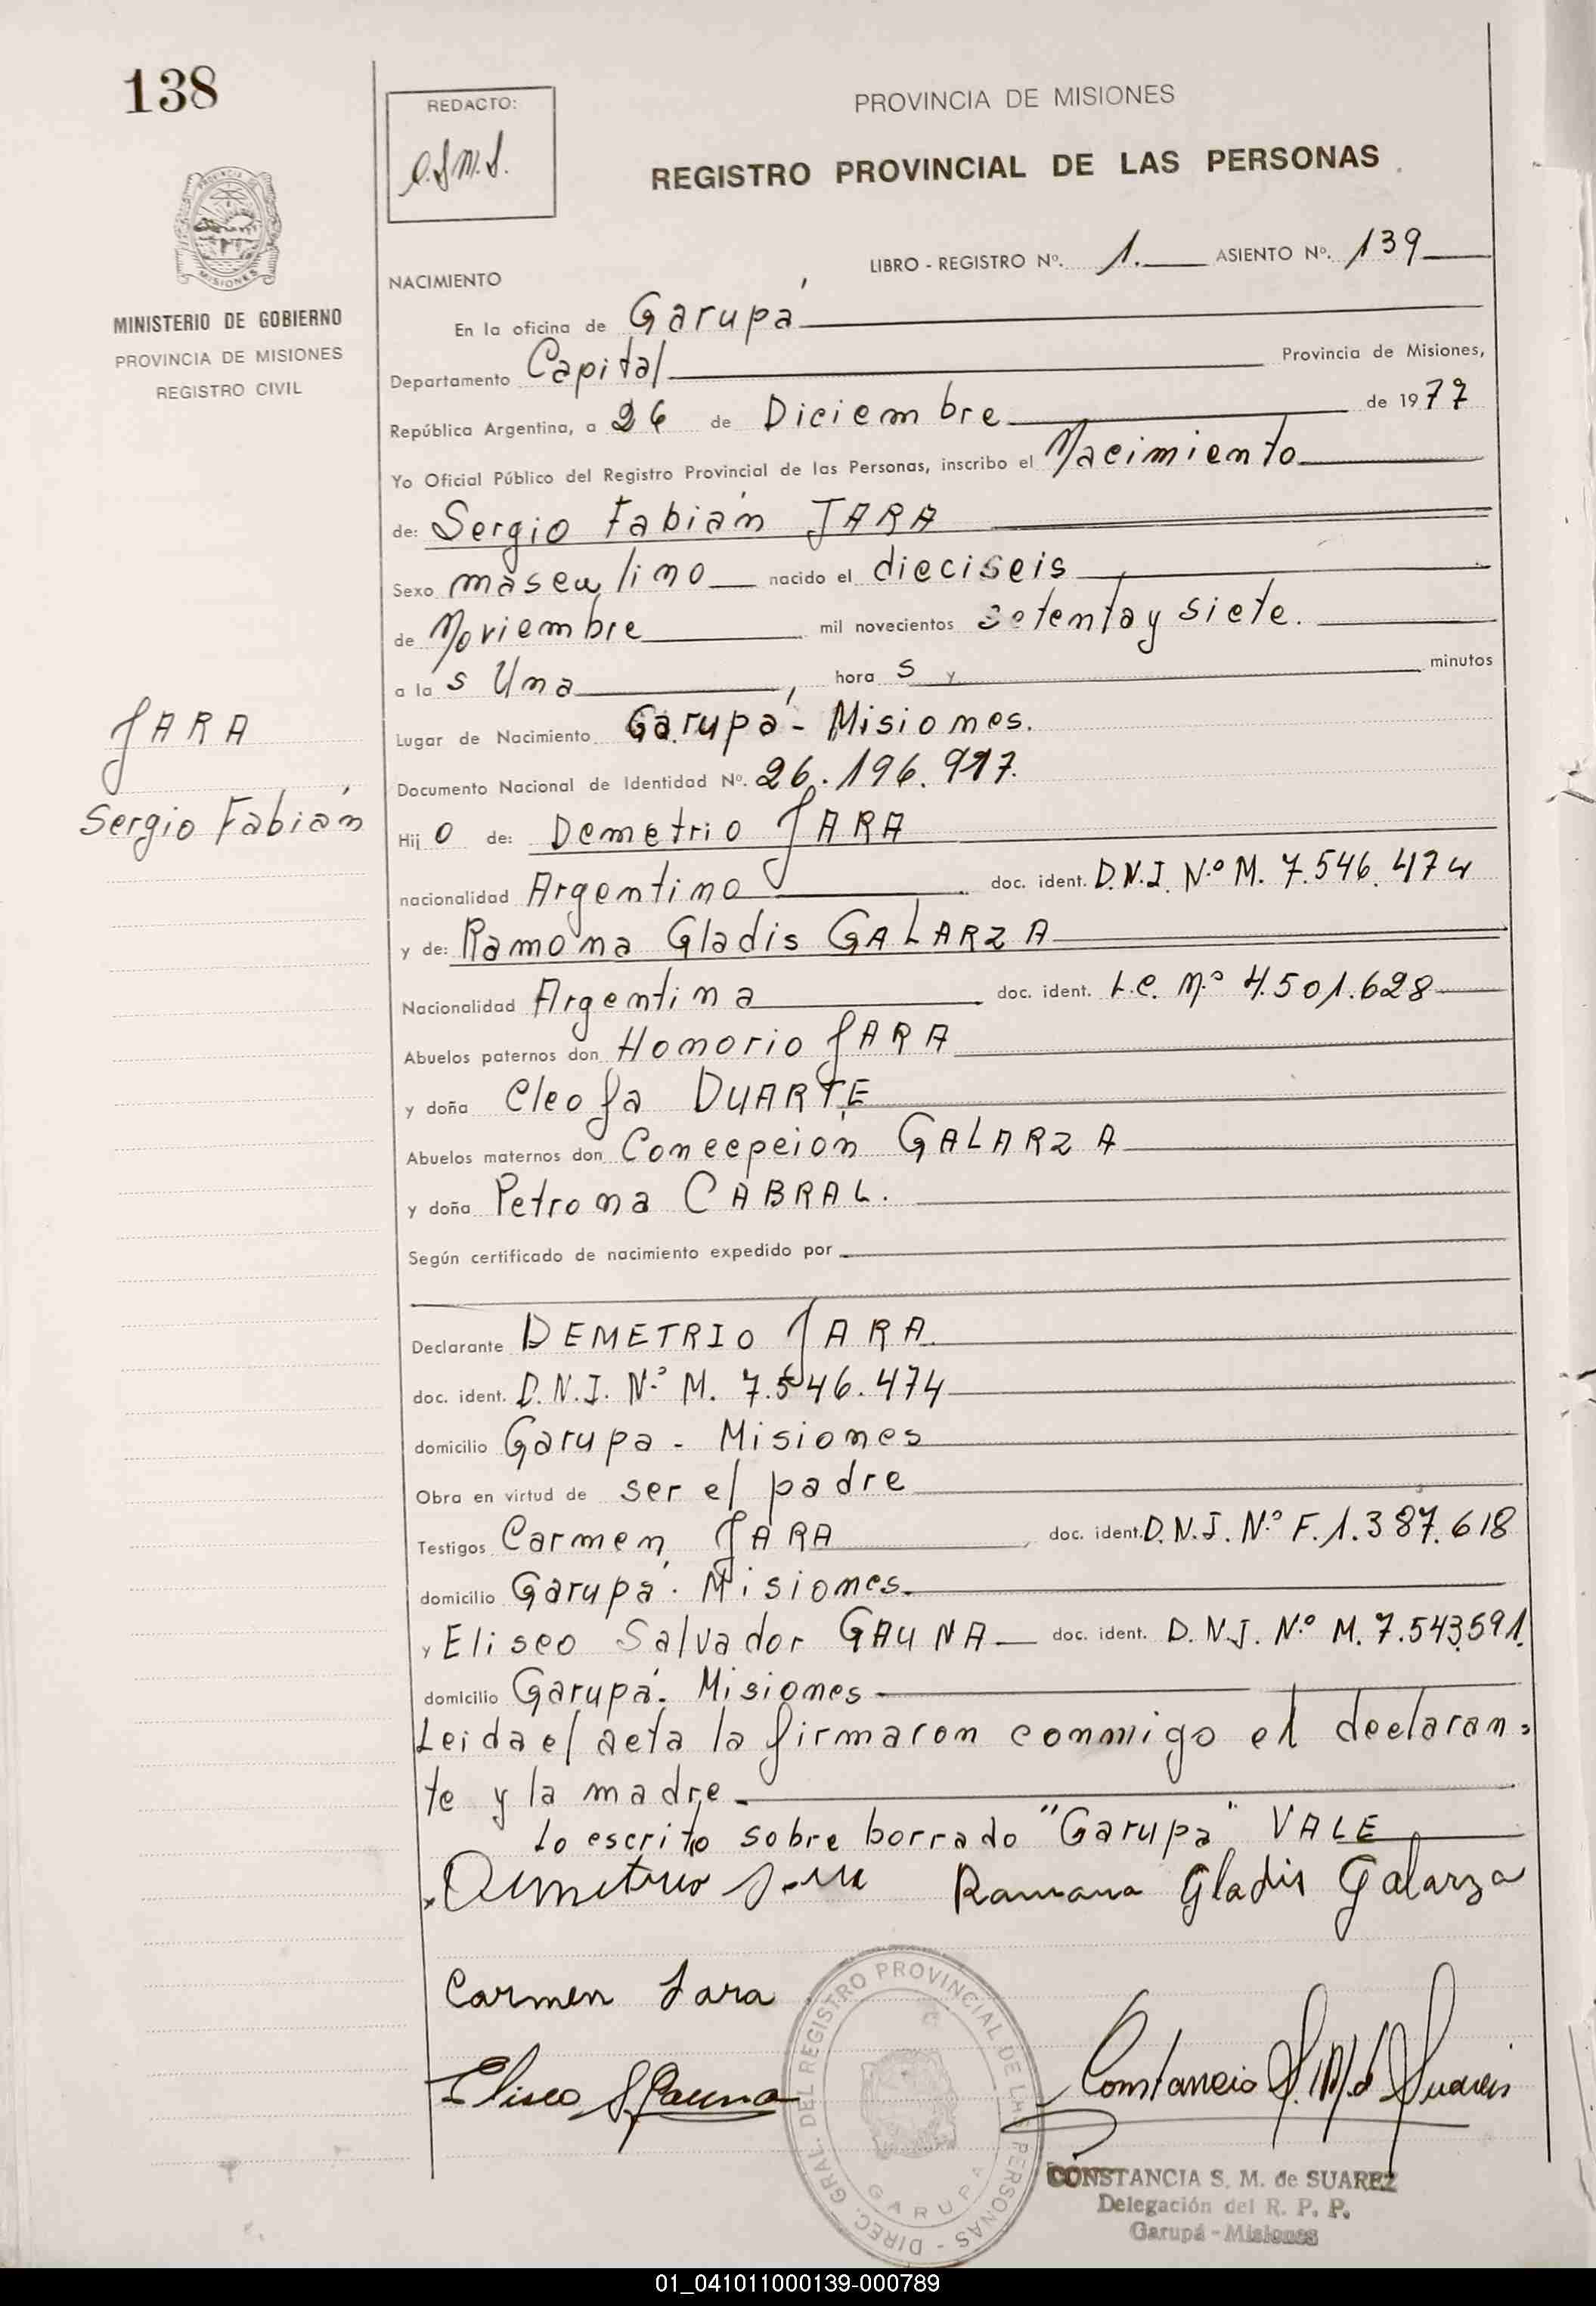 138
REDACTO:
C.S.M.S.
PROVINCIA DE MISIONES
REGISTRO PROVINCIAL DE LAS PERSONAS
PROVINCIA DE
MISIONES
MINISTERIO DE GOBIERNO
PROVINCIA DE MISIONES
REGISTRO CIVIL
LIBRO - REGISTRO Nº. 1. ASIENTO Nº. 139
NACIMIENTO
En la oficina de Garupá
Departamento Capital Provincia de Misiones,
República Argentina, a 26 de Diciembre de 1977
Yo Oficial Público del Registro Provincial de las Personas, inscribo el Nacimiento
de: Sergio Fabián JARA
Sexo masculino nacido el dieciseis
de Noviembre mil novecientos setenta y siete.
a la s Una hora s y minutos
Lugar de Nacimiento Garupá - Misiones.
JARA
Sergio Fabián
Documento Nacional de Identidad Nº. 26.196.997.
Hij o de: Demetrio JARA
nacionalidad Argentino doc. ident. D.N.I. Nº M. 7.546.474
y de: Ramona Gladis GALARZA
Nacionalidad Argentina doc. ident. L.C. Nº 4.501.628
Abuelos paternos don Honorio JARA
y doña Cleofa DUARTE
Abuelos maternos don Concepción GALARZA
y doña Petrona CABRAL.
Según certificado de nacimiento expedido por
Declarante DEMETRIO JARA.
doc. ident. D.N.I. Nº M. 7.546.474
domicilio Garupa - Misiones
Obra en virtud de ser el padre
Testigos Carmen JARA doc. ident. D.N.I. Nº F. 1.387.618
domicilio Garupá. Misiones.
y Eliseo Salvador GAUNA doc. ident. D.N.I. Nº M. 7.543.591.
domicilio Garupá. Misiones
Leida el acta la firmaron conmigo el declaran=
te y la madre.
Lo escrito sobre borrado "Garupa" VALE
Demetrio Jara Ramona Gladis Galarza
Carmen Jara
Eliseo S Gauna
Constancia S. M. d Suarez
DIREC. GRAL. DEL REGISTRO PROVINCIAL DE LAS PERSONAS -
GARUPA
CONSTANCIA S. M. de SUAREZ
Delegación del R. P. P.
Garupá - Misiones
01_041011000139-000789